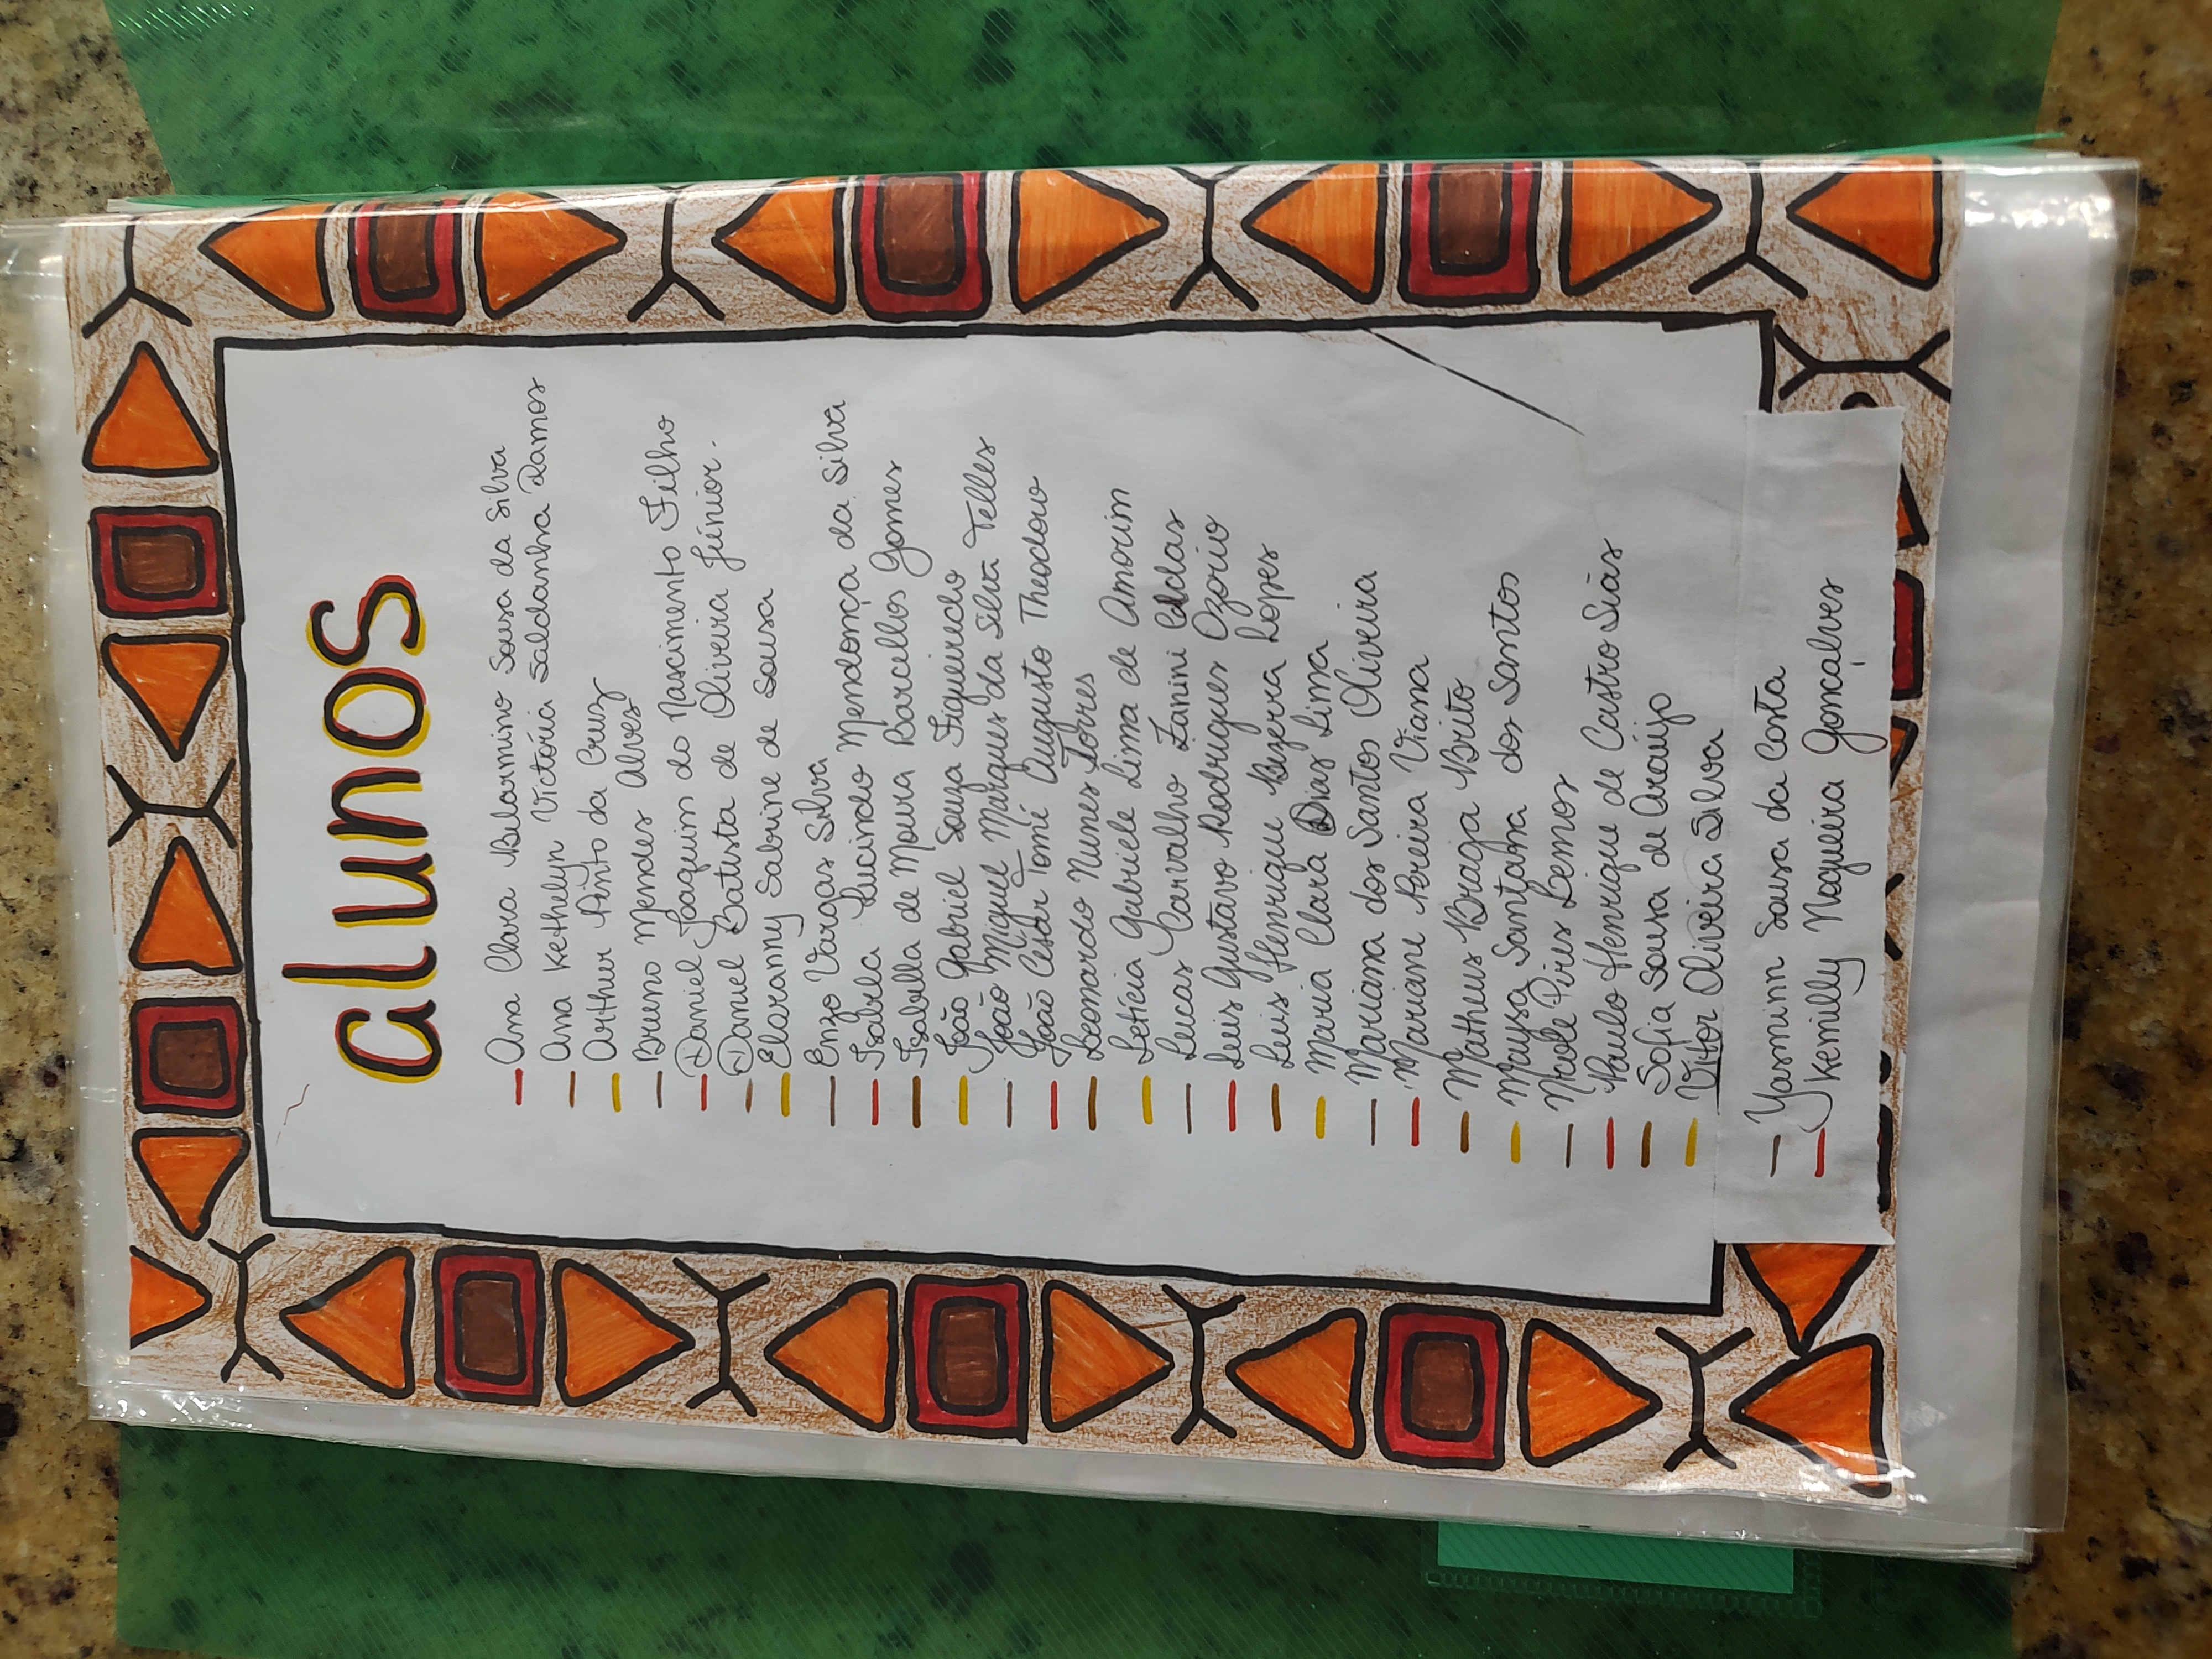 alunos
Ana Clara Belarmino Sousa da Silva
Ana Kethelyn Victória Saldanha Ramos
Arthur Pinto da Cruz
Bruno Mendes Alves
Daniel Joaquim do Nascimento Filho
Daniel Batista de Oliveira Júnior.
Elaranny Sabrine de Sousa
Enzo Vargas Silva
Isabela Lucindo Mendonça da Silva
Isabella de Moura Barcellos Gomes
João Gabriel Souza Figueiredo
João Miguel Marques da Silva Telles
João César Tomé Augusto Theodoro
Leonardo Nunes Torres
Letícia Gabriele Lima de Amorim
Lucas Carvalho Zanini Caldas
Luis Gustavo Rodrigues Ozorio
Luis Henrique Bezerra Lopes
Maria Clara Dias Lima
Mariana dos Santos Oliveira
Mariane Pereira Viana
Matheus Braga Brito
Maysa Santana dos Santos
Nicole Pires Lemos
Paulo Henrique de Castro Siàs
Sofia Sousa de Araújo
Vitor Oliveira Silva
Yasminn Sousa da Costa
Kemilly Nogueira Gonçalves